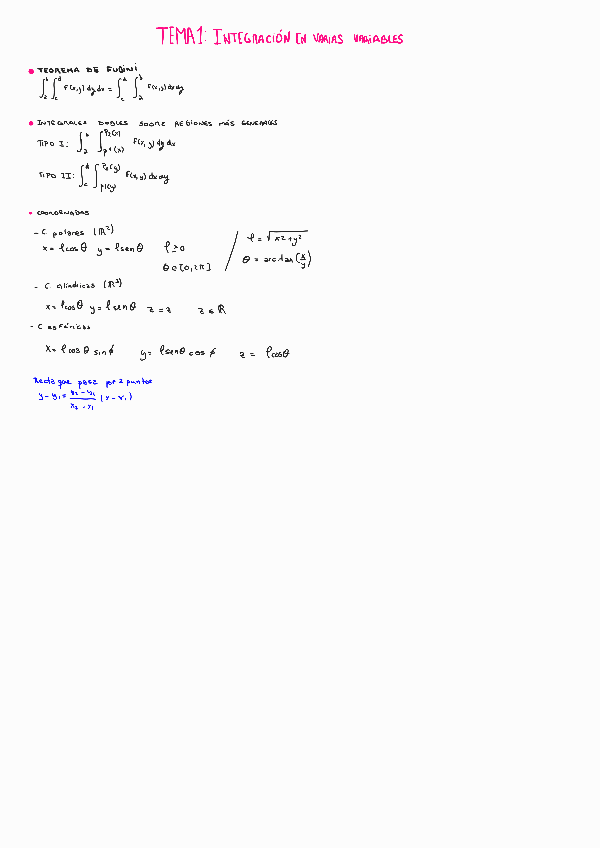 TEMA 1: INTEGRACIÓN EN VARIAS VARIABLES
• TEOREMA DE FUBINI
∫_a^b ∫_c^d F(x,y) dy dx = ∫_c^d ∫_a^b F(x,y) dx dy
• INTEGRALES DOBLES SOBRE REGIONES MÁS GENERALES
TIPO I: ∫_a^b ∫_{φ1(x)}^{φ2(x)} F(x,y) dy dx
TIPO II: ∫_c^d ∫_{φ1(y)}^{φ2(y)} F(x,y) dx dy
• COORDENADAS
- C. polares (ℝ²)
x = ρ cos θ y = ρ sen θ ρ ≥ 0 / ρ = √x²+y²
θ ∈ [0, 2π] θ = arctan (x/y)
- C. cilíndricas (ℝ³)
x = ρ cos θ y = ρ sen θ z = z z ∈ ℝ
- C esféricas
x = ρ cos θ sin φ y = ρ sen θ cos φ z = ρ cos θ
Recta que pasa por 2 puntos
y - y₁ = (y₂ - y₁)/(x₂ - x₁) (x - x₁)